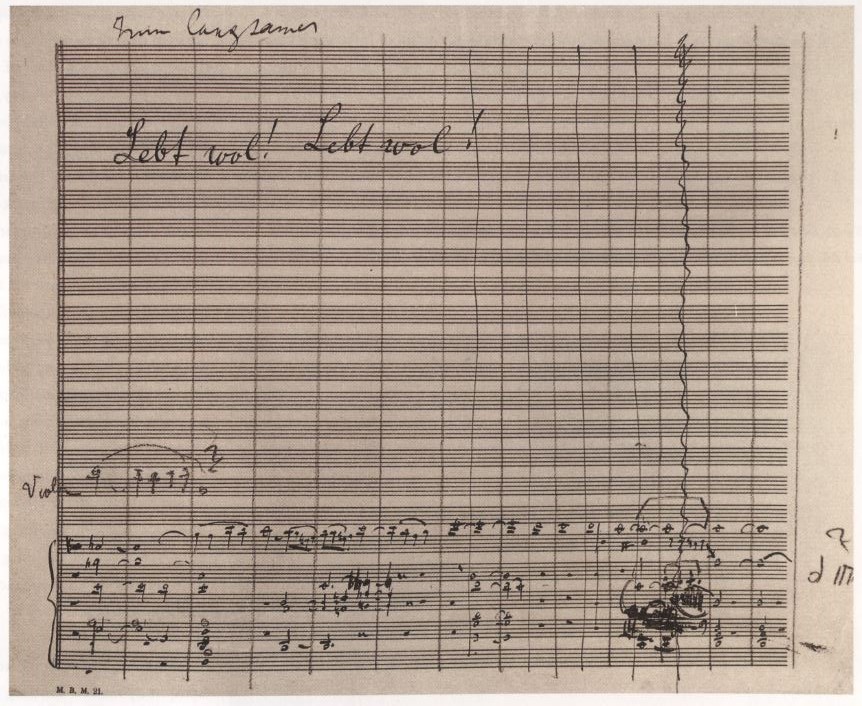 langsamer
Lebt wol! Lebt wol!
Viol
M. B. M. 21.